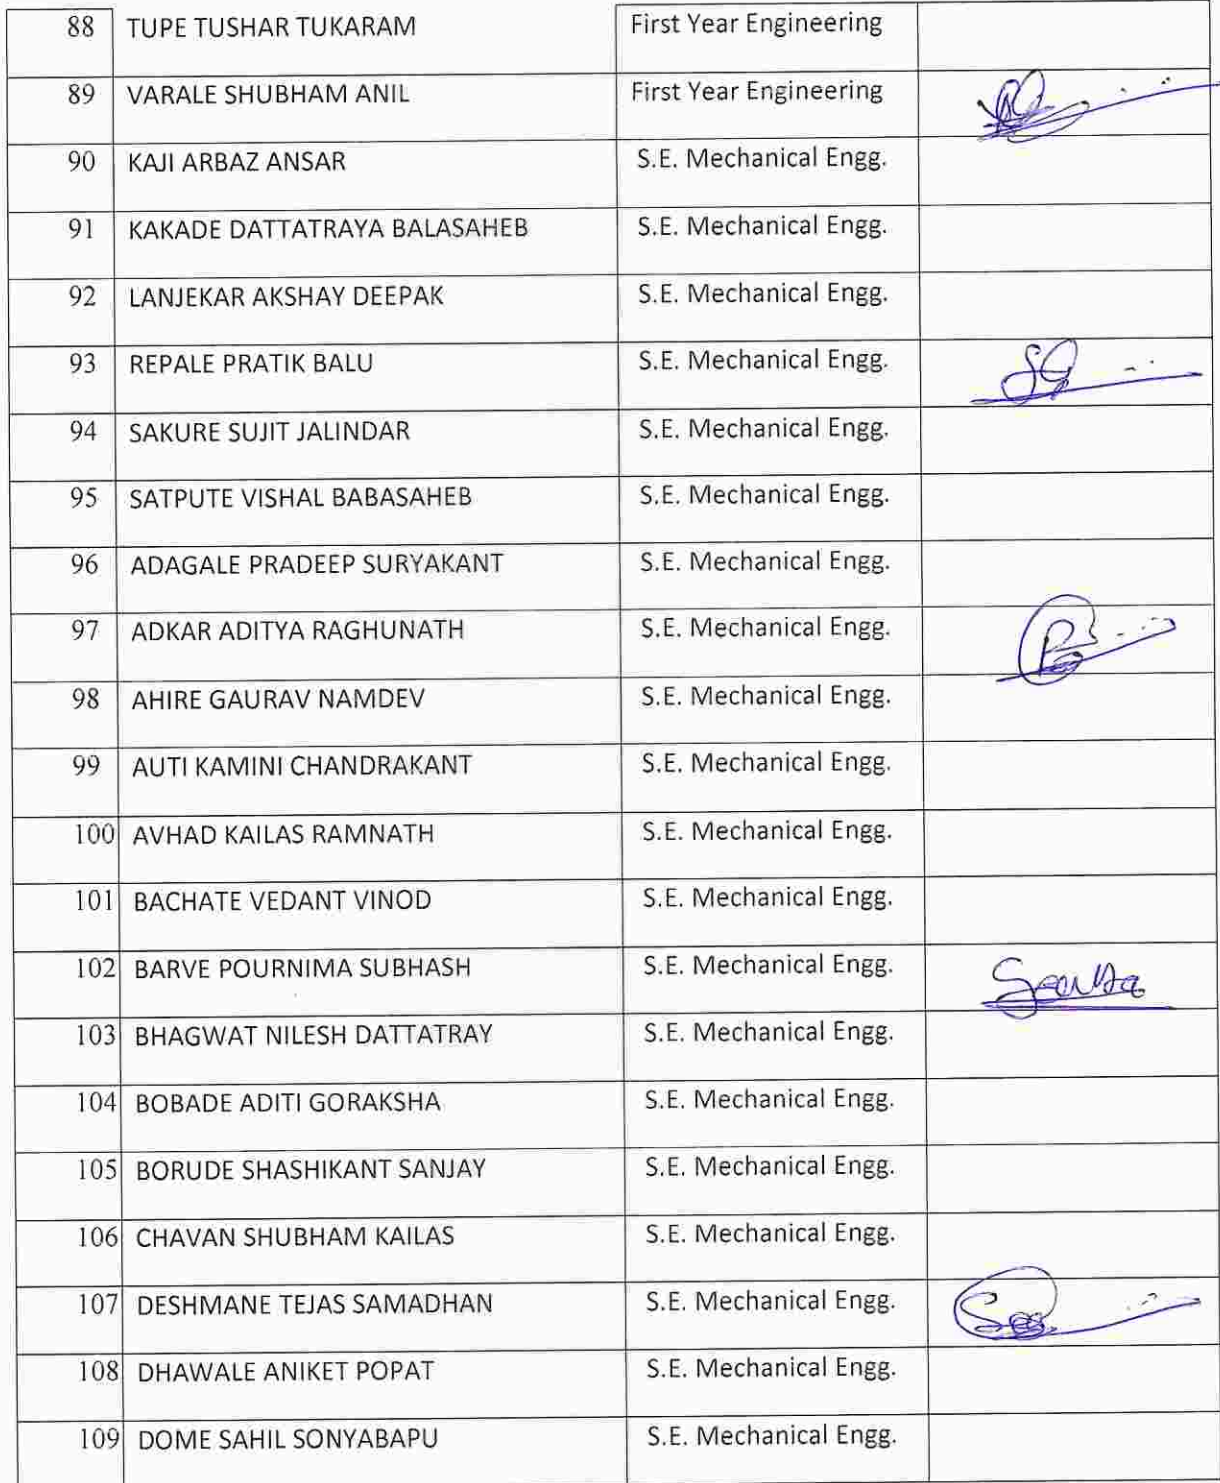 88 TUPE TUSHAR TUKARAM First Year Engineering
89 VARALE SHUBHAM ANIL First Year Engineering
90 KAJI ARBAZ ANSAR S.E. Mechanical Engg.
91 KAKADE DATTATRAYA BALASAHEB S.E. Mechanical Engg.
92 LANJEKAR AKSHAY DEEPAK S.E. Mechanical Engg.
93 REPALE PRATIK BALU S.E. Mechanical Engg.
94 SAKURE SUJIT JALINDAR S.E. Mechanical Engg.
95 SATPUTE VISHAL BABASAHEB S.E. Mechanical Engg.
96 ADAGALE PRADEEP SURYAKANT S.E. Mechanical Engg.
97 ADKAR ADITYA RAGHUNATH S.E. Mechanical Engg.
98 AHIRE GAURAV NAMDEV S.E. Mechanical Engg.
99 AUTI KAMINI CHANDRAKANT S.E. Mechanical Engg.
100 AVHAD KAILAS RAMNATH S.E. Mechanical Engg.
101 BACHATE VEDANT VINOD S.E. Mechanical Engg.
102 BARVE POURNIMA SUBHASH S.E. Mechanical Engg.
103 BHAGWAT NILESH DATTATRAY S.E. Mechanical Engg.
104 BOBADE ADITI GORAKSHA S.E. Mechanical Engg.
105 BORUDE SHASHIKANT SANJAY S.E. Mechanical Engg.
106 CHAVAN SHUBHAM KAILAS S.E. Mechanical Engg.
107 DESHMANE TEJAS SAMADHAN S.E. Mechanical Engg.
108 DHAWALE ANIKET POPAT S.E. Mechanical Engg.
109 DOME SAHIL SONYABAPU S.E. Mechanical Engg.